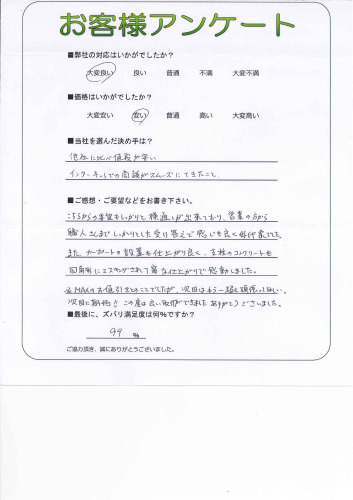 お客様アンケート
■弊社の対応はいかがでしたか？
大変良い 良い 普通 不満 大変不満
■価格はいかがでしたか？
大変安い 安い 普通 高い 大変高い
■当社を選んだ決め手は？
他社に比べ値段が安い
インターネットでの商談がスムーズにできたこと
■ご感想・ご要望などをお書き下さい。
こちらからの要望もしっかりと横通しが出来ており、営業の方から
職人さんまでしっかりとした受け答えで感じも良く好印象でした
また、カーポートの設置も仕上がり良く、支柱のコンクリートも
四角形にマスキングされて 仕上がりで感動しました。
※MAXのお値引きとのことでしたが、次回はもう一超え頑張ってほしい。
次回に期待!! この度は良い取引ができました ありがとうございました。
■最後に、ズバリ満足度は何％ですか？
99 %
ご協力頂き、誠にありがとうございました。